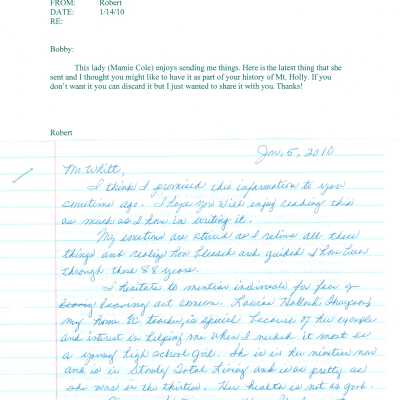 FROM: Robert
DATE: 1/14/10
RE:
Bobby:
This lady (Mamie Cole) enjoys sending me things. Here is the latest thing that she
sent and I thought you might like to have it as part of your history of Mt. Holly. If you
don't want it you can discard it but I just wanted to share it with you. Thanks!
Robert
Jan. 5, 2010
Mr. Whitt,
I think I promised this information to you
sometime ago. I hope you will enjoy reading this
as much as I have in writing it.
My emotions are stirred as I relive all these
things and realize how blessed and guided I have been
through these 88 years.
I hesitate to mention individuals for fear of
leaving out someone. Louise
my Home Ec teacher, is special because of her example
and interest in helping me when I needed it most as
a young high school girl. She is in her nineties now
and is in Living and is as pretty as
she was in the thirties. Her health is not so good.